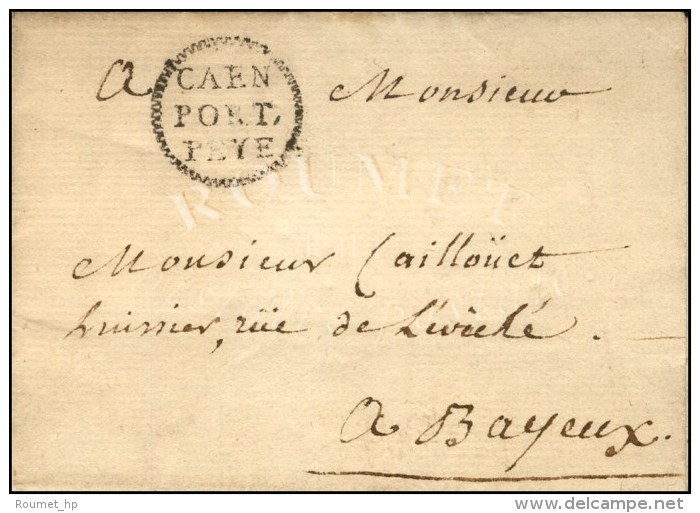 A Monsieur
CAEN
PORT,
PEYE
ROUMET
Monsieur Cailloüet
huissier, rüe de L'évêché.
A Bayeux.
Roumet_hp
www.delcampe.net